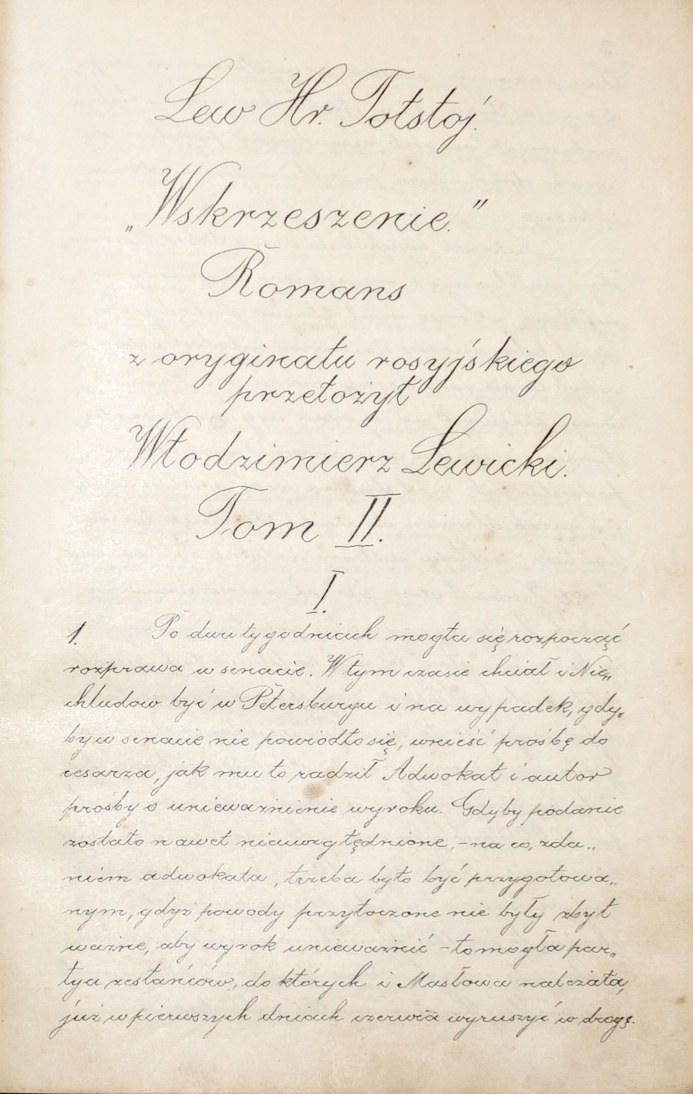 Lew Hr. Tołstoj.
„Wskrzeszenie."
Romans
z oryginału rosyjskiego
przełożył
Włodzimierz Lewicki.
Tom II.
I.
1. Po dwu tygodniach mogła się rozpocząć
rozprawa w senacie. W tym czasie chciał i Nie„
chludow być w Petersburgu i na wypadek, gdy„
by w senacie nie powiodło się, wnieść prośbę do
cesarza, jak mu to radził Adwokat i autor
prośby o unieważnienie wyroku. Gdyby podanie
zostało nawet nieuwzględnione, – na co, zda„
niem adwokata, trzeba było być przygotowa„
nym, gdyż powody przytoczone nie były zbyt
ważne, aby wyrok unieważnić – to mogła par„
tya zesłańców, do których i Masłowa należała,
już w pierwszych dniach czerwca wyruszyć w drogę.